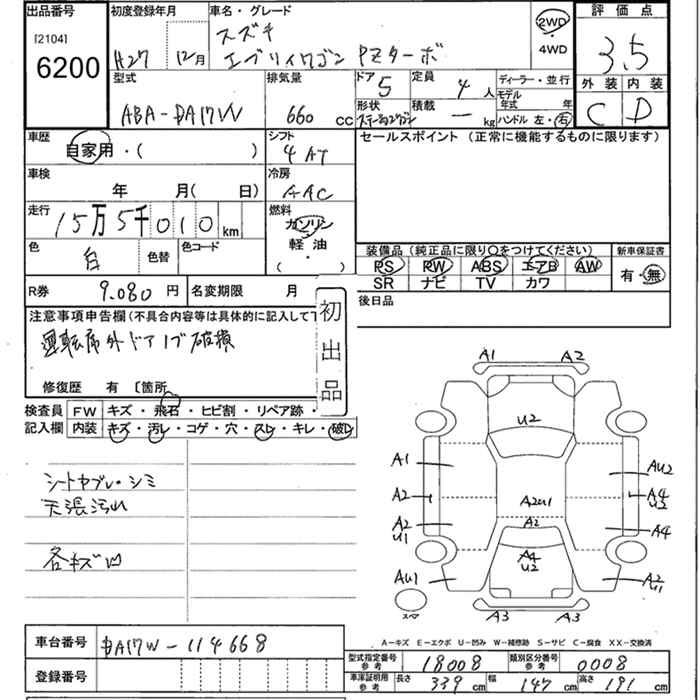 出品番号
[2104]
6200
初度登録年月
H27 12月
車名・グレード
スズキ
エブリイワゴン PZターボ
2WD
・
4WD
評価点
3.5
外装 内装
C D
型式
ABA-DA17W
排気量
660 cc
ドア 5
定員 4人
形状 ステーションワゴン
積載 ー kg
ディーラー・並行
モデル年式 年
ハンドル 左・右
車歴
自家用・( )
シフト
4 AT
セールスポイント (正常に機能するものに限ります)
車検
年 月( 日)
冷房
AAC
走行
15万5千010km
燃料
ガソリン
軽油
・
( )
色
白
色替
色コード
装備品(純正品に限り〇をつけてください)
PS PW ABS エアB AW
SR ナビ TV カワ
新車保証書
有・無
R券 9.080円
名変期限 月
後日品
初出品
注意事項申告欄(不具合内容等は具体的に記入して下
運転席外ドアノブ破損
修復歴 有 〔箇所
検査員記入欄
FW キズ・飛石・ヒビ割・リペア跡・
内装 キズ・汚レ・コゲ・穴・スレ・キレ・破レ
シートヤブレ・シミ
天張汚れ
各キズ凹
A1 A2
U2
A1
A2
A2
U1
AU1
A2U1
A2
A4
U2
AU2
A4
U2
A4
A2
U1
スペア
A3 A3
A-キズ E-エクボ U-凹み W-補修跡 S-サビ C-腐食 XX-交換済
車台番号 DA17W-114668
登録番号
型式指定番号参考 18008
類別区分番号参考 0008
車庫証明用参考 長さ 339cm 幅 147cm 高さ 191cm